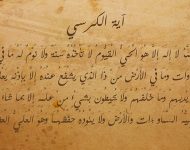 آية الكرسي
لا إله إلا هو الحي القيوم لا تأخذه سنة ولا نوم له ما في
وات وما في الأرض من ذا الذي يشفع عنده إلا بإذنه يعلم
يديهم وما خلفهم ولا يحيطون بشيء من علمه إلا بما شاء
السماوات والأرض ولا يئوده حفظهما وهو العلي